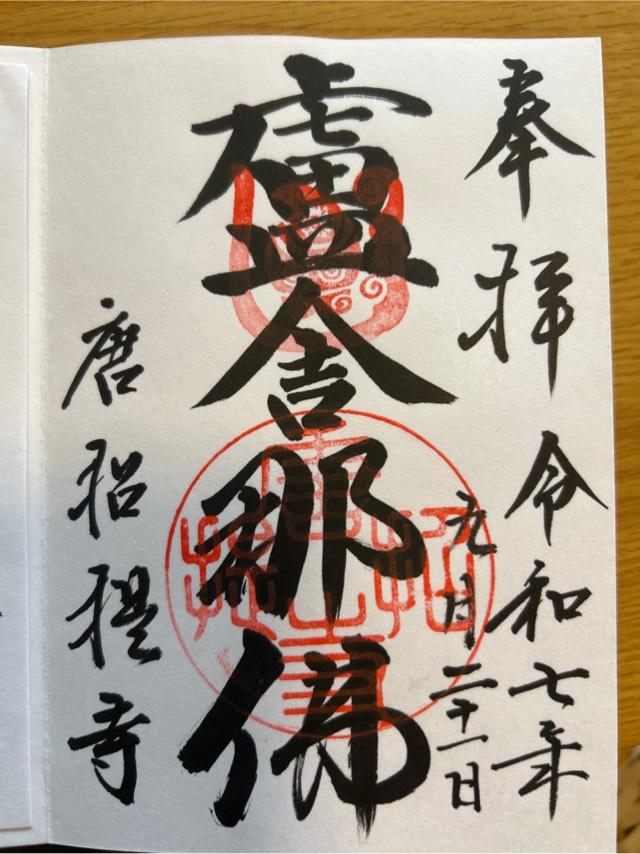 奉拝 令和七年
九月二十一日
盧舎那佛
唐招提寺